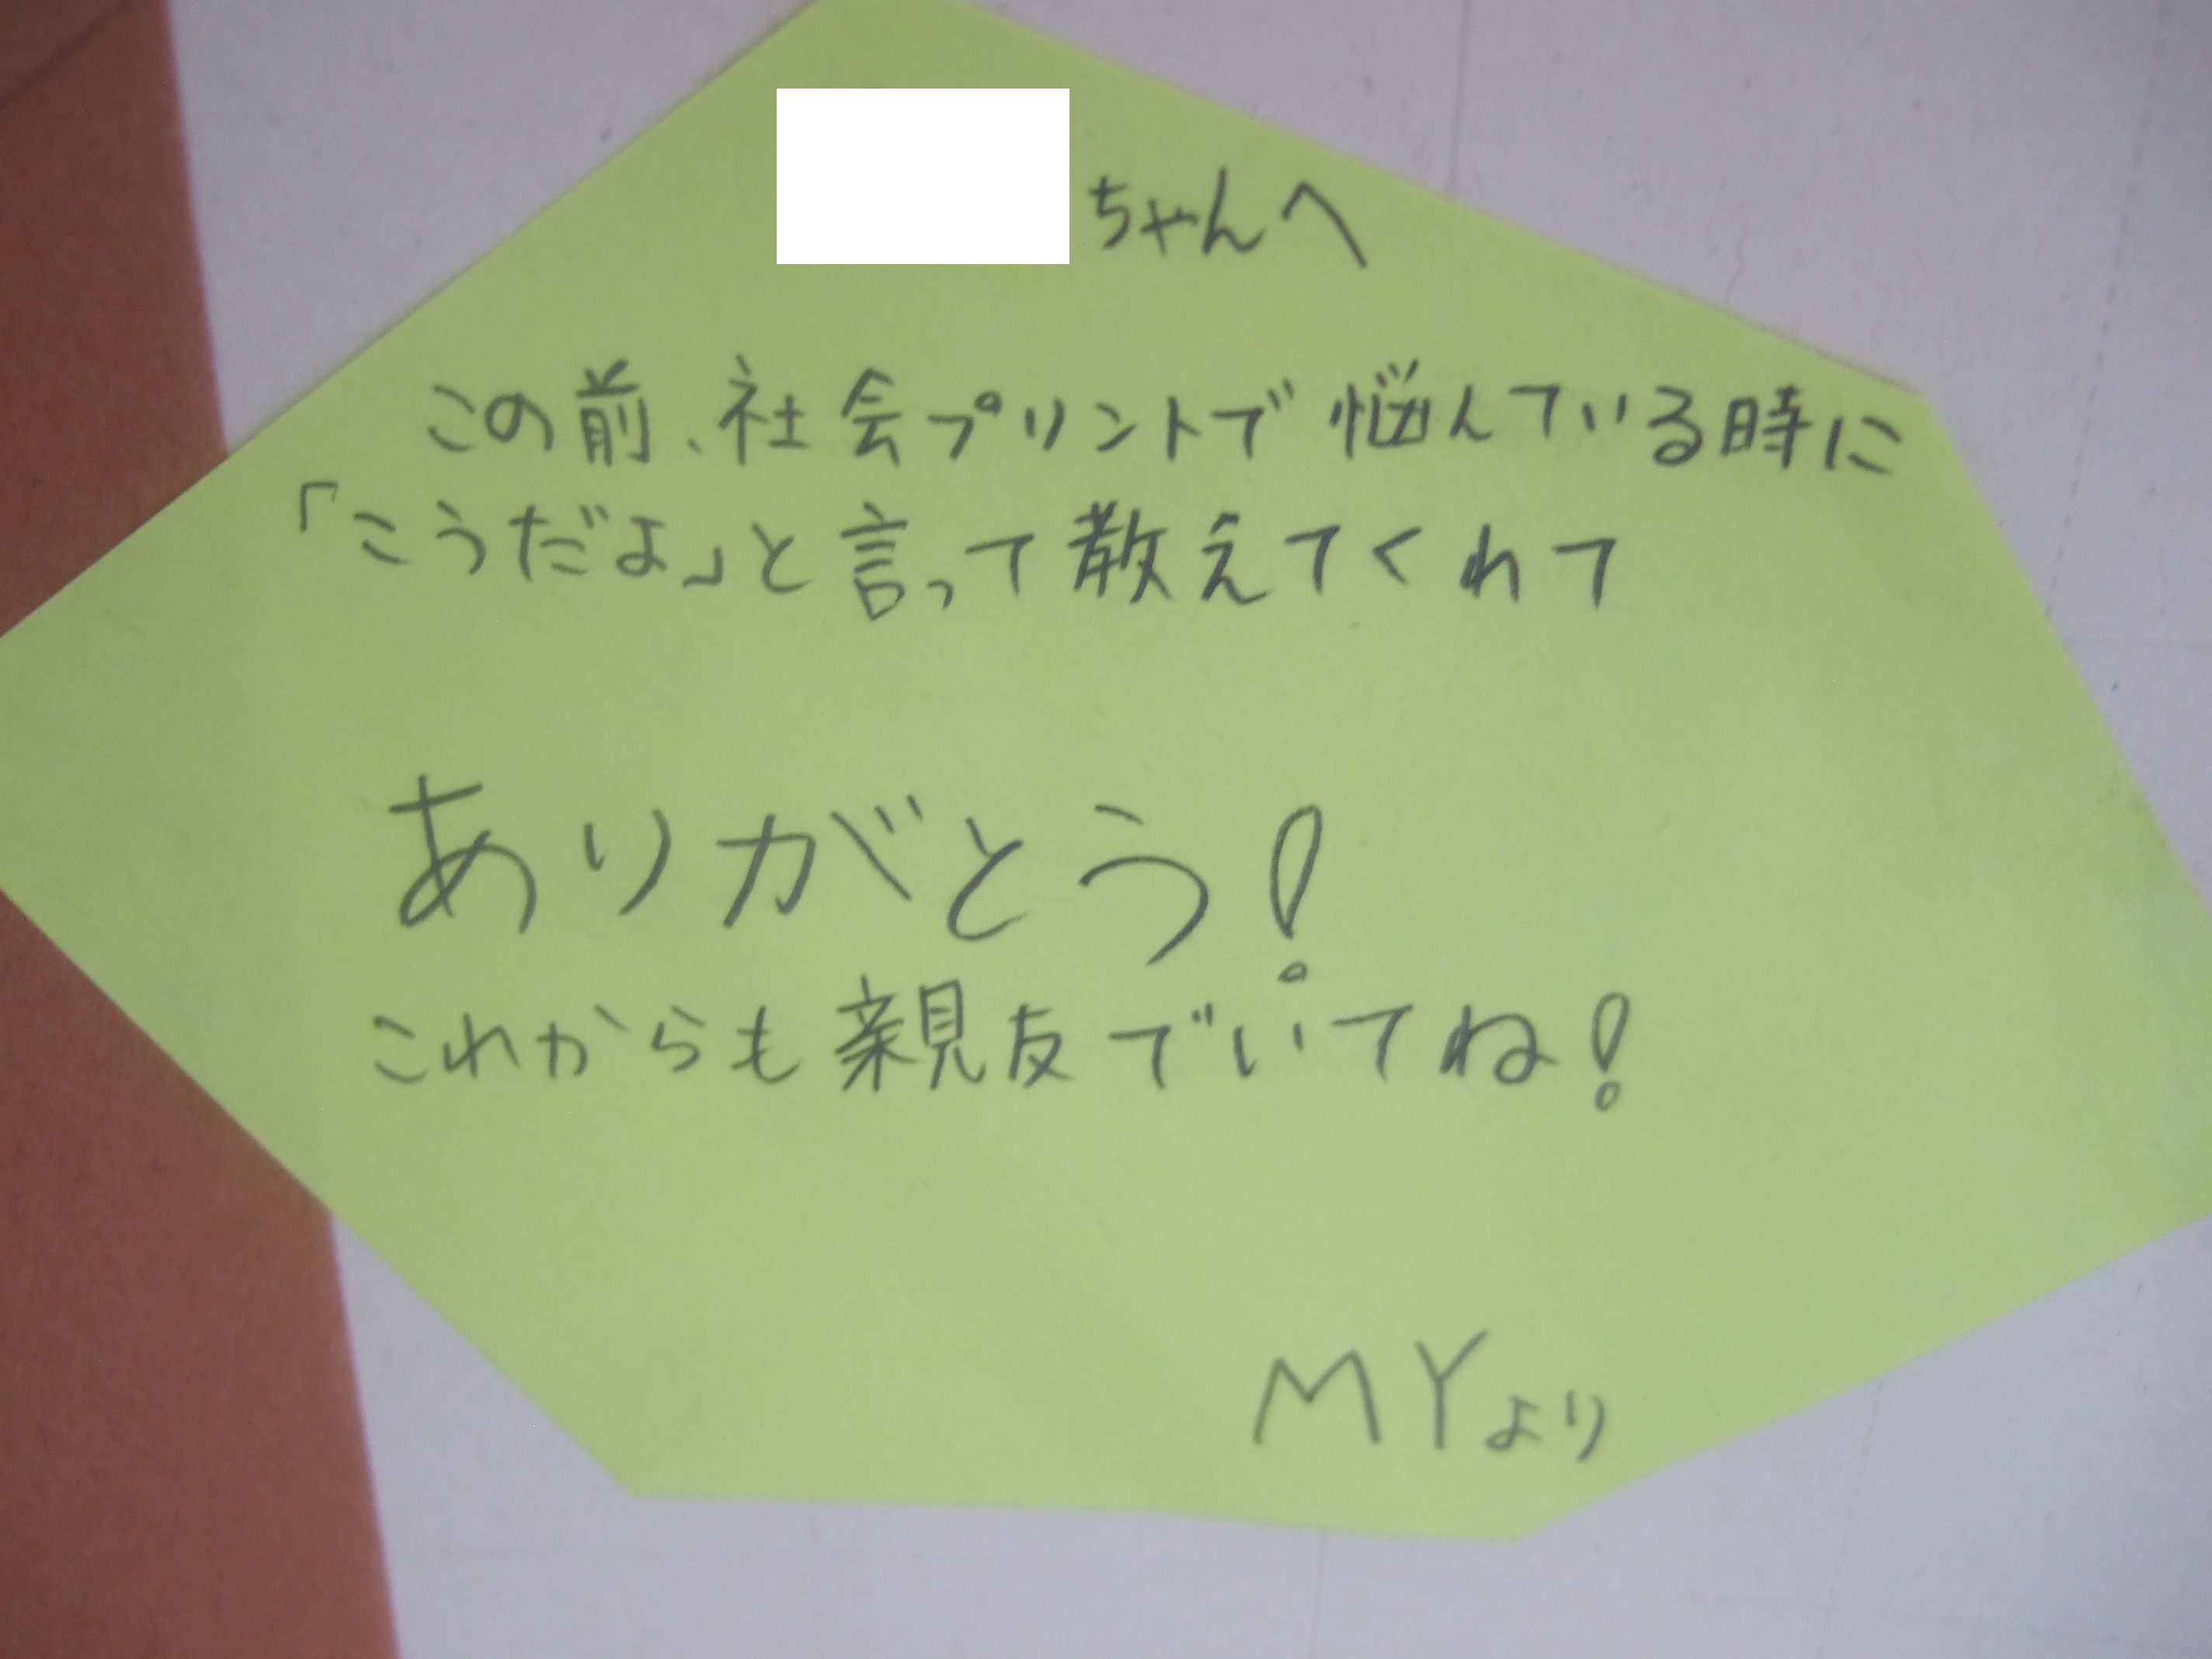 ちゃんへ
この前、社会プリントで悩んでいる時に
「こうだよ」と言って教えてくれて
ありがとう!
これからも親友でいてね!
MYより